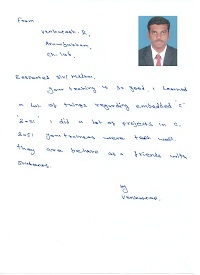 From
Venkatesh. R,
Arumbakkam,
Ch-106.
Respected sir/ Madam,
your teaching is so good. i learned
a lot of things regarding embedded C
'8051' i did a lot of projects in C.
8051 your trainees were teach well.
they are behave as a friends with
students.
by
Venkatesh.